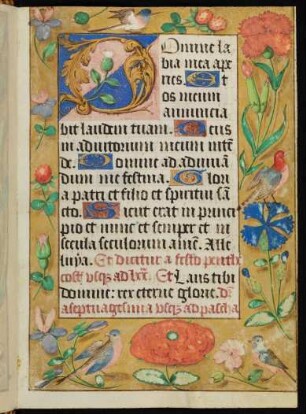 Domine la
bia mea ape
ries. Et
os meum
annuncia
bit laudem tuam. Deus
in adiutorium meum intē
de. Domine ad adiuuā
dum me festina. Glori
a patri et filio et spiritui sā
cto. Sicut erat in princi
pio et nunc et semper et in
secula seculorum amen. Alle
luya. Et dicitur a festo penthe
costes vsqz ad lxx. Et Laus tibi
domine: rex eterne glorie. dr̄
a septuagesima vsqz ad pascha